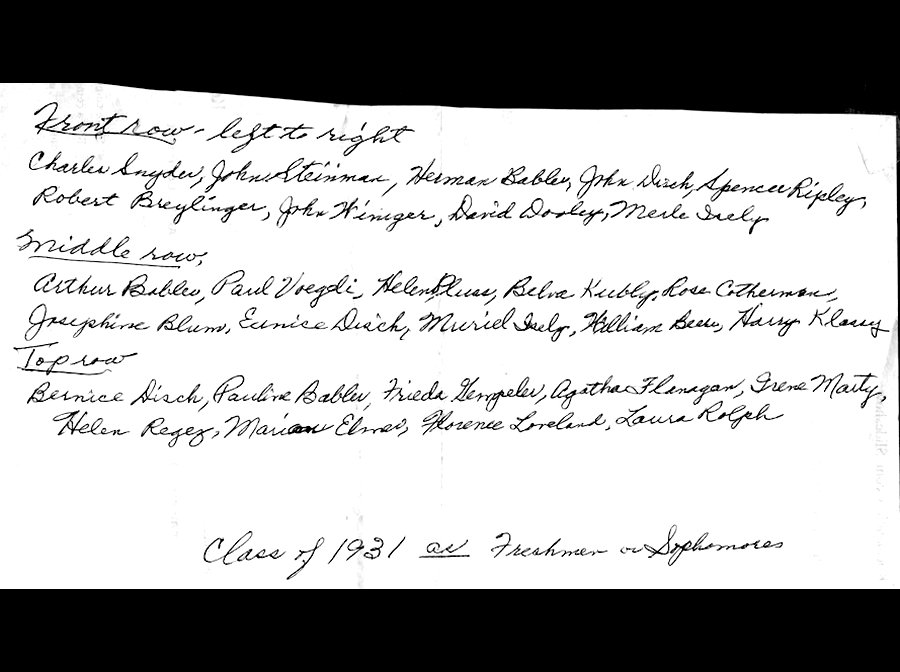 Front row - left to right
Charles Snyder, John Steinman, Herman Babler, John Disch, Spencer Ripley,
Robert Breylinger, John Winiger, David Dooley, Merle Isely
Middle row,
Arthur Babler, Paul Voegeli, Helen Pluss, Belva Kubly, Rose Cotherman,
Josephine Blum, Eunice Disch, Muriel Isely, William Beers, Harry Klassy
Top row
Bernice Disch, Pauline Babler, Frieda Gempeler, Agatha Flanagan, Irene Marty,
Helen Regez, Marian Elmer, Florence Loveland, Laura Rolph
Class of 1931 as Freshmen or Sophomores